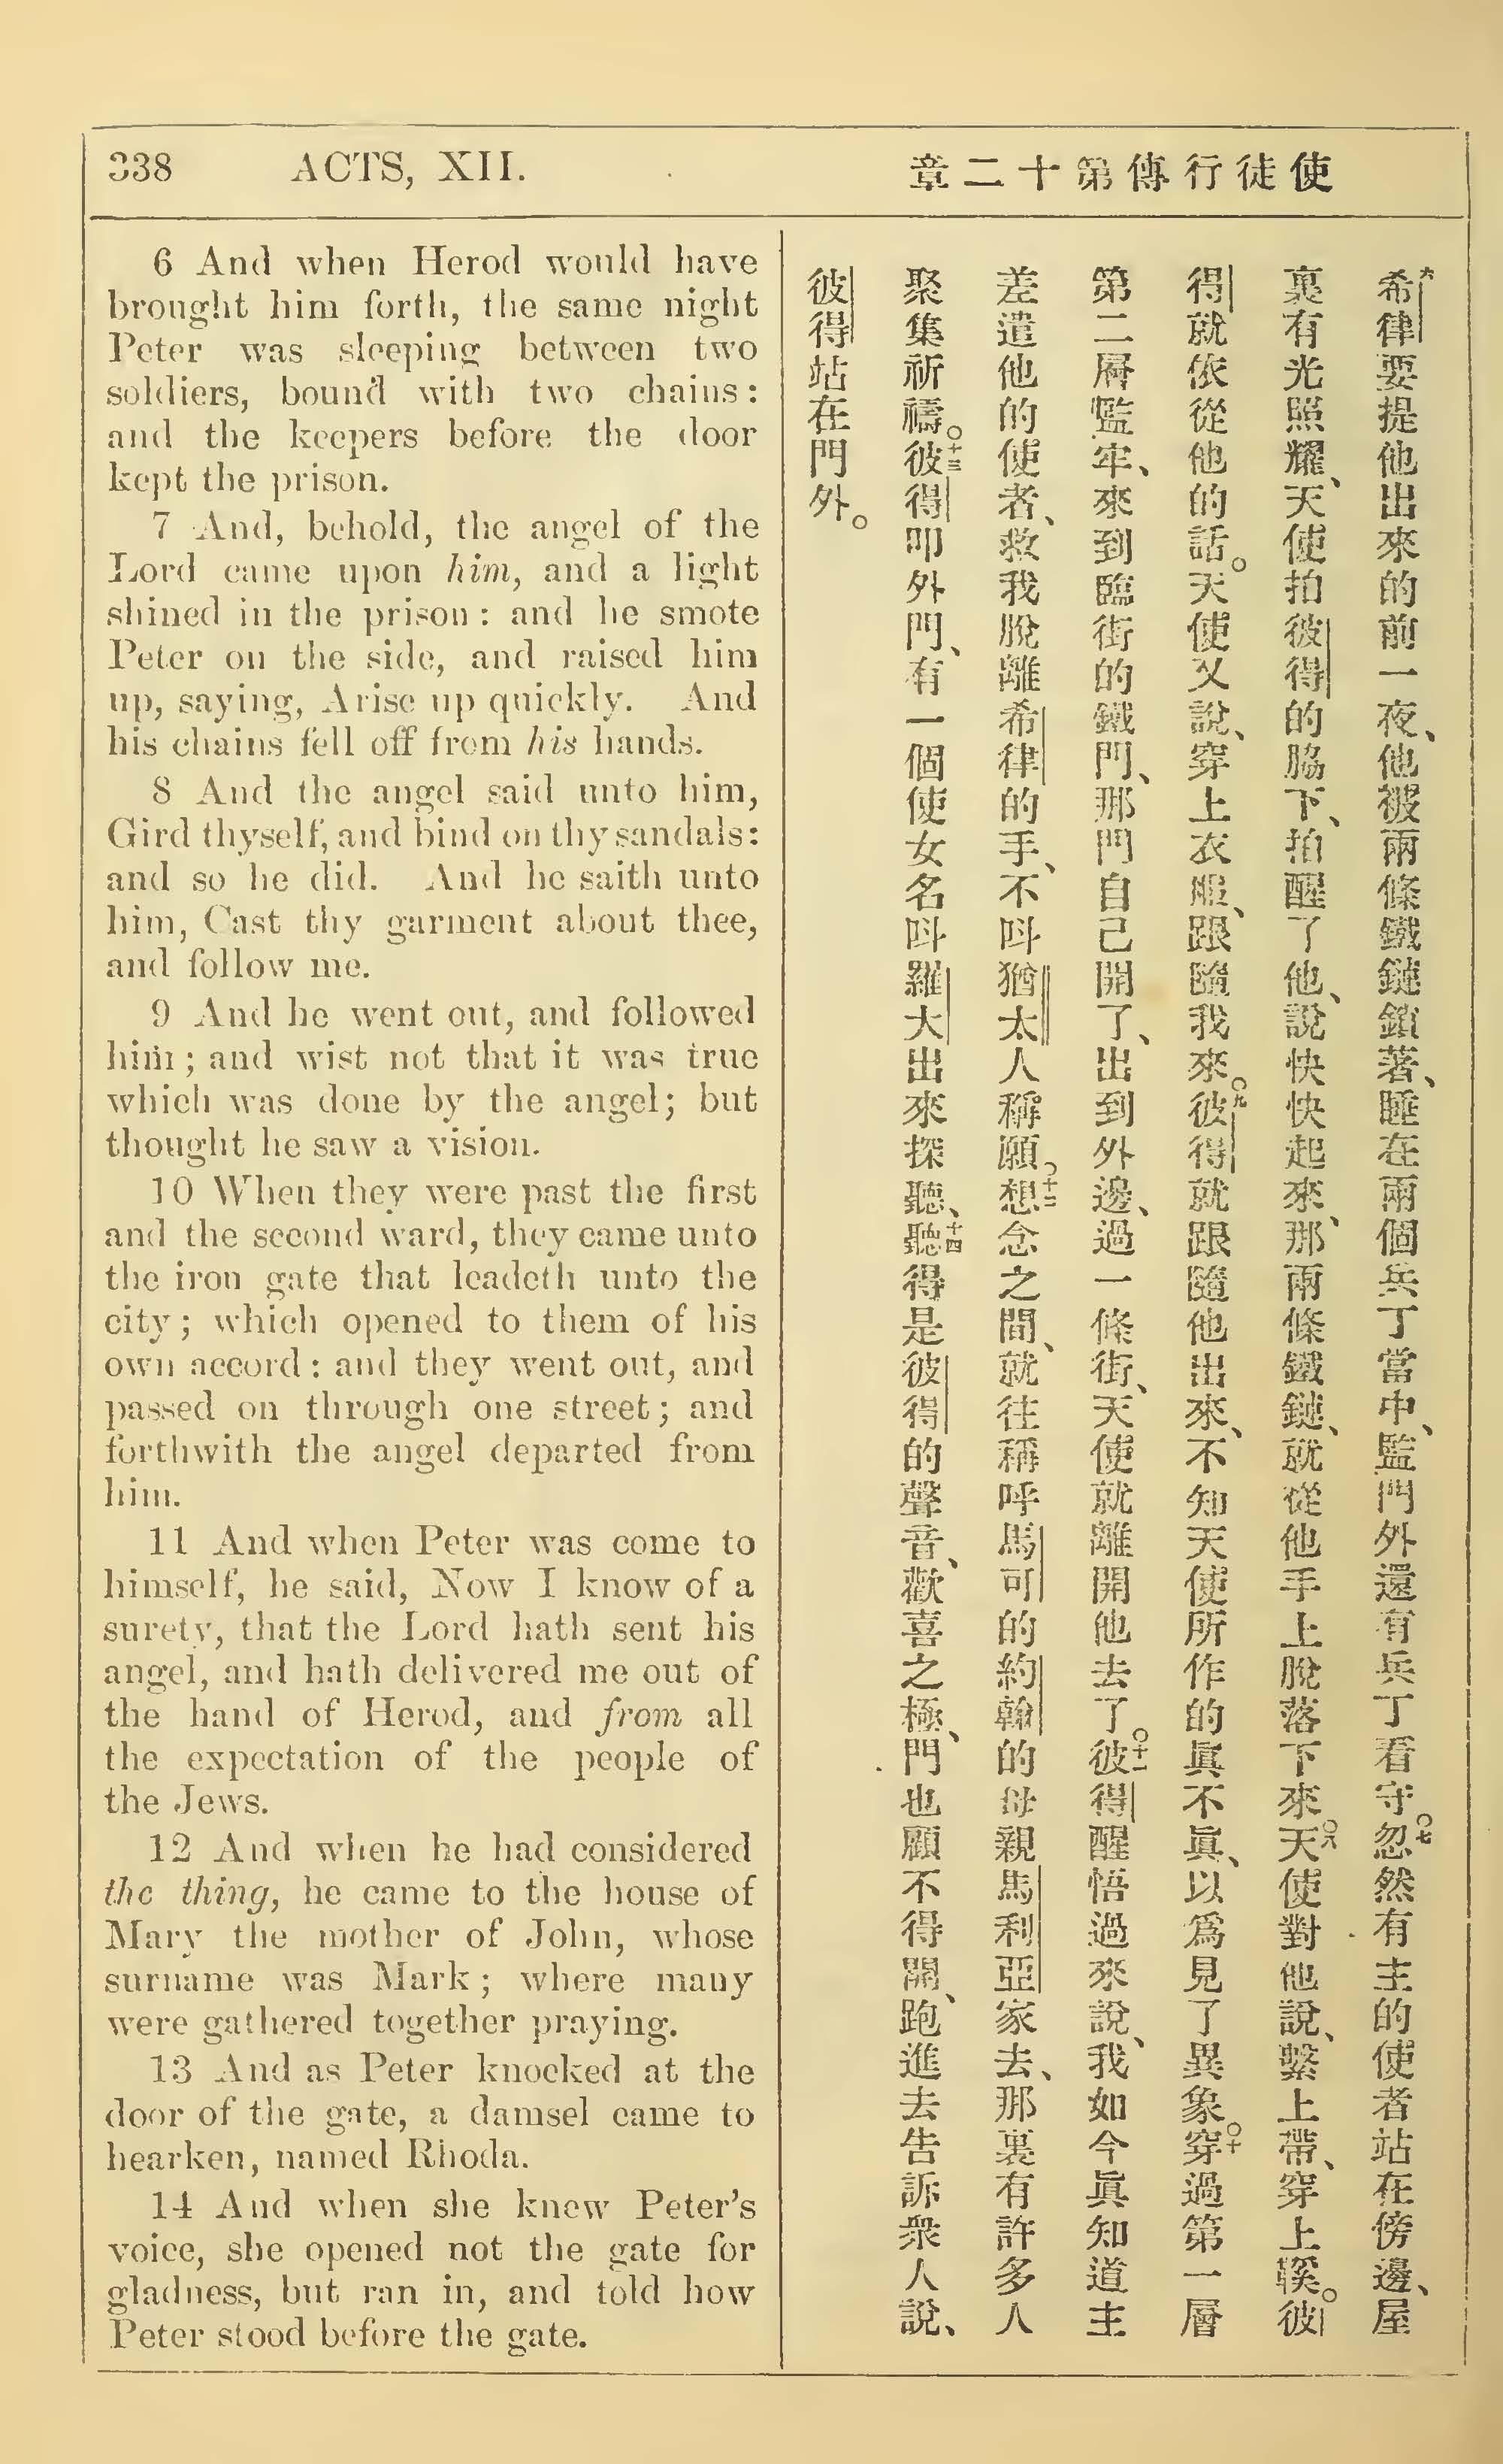 338 ACTS, XII.
使徒行傳第十二章
6 And when Herod would have
brought him forth, the same night
Peter was sleeping between two
soldiers, bound with two chains:
and the keepers before the door
kept the prison.
7 And, behold, the angel of the
Lord came upon him, and a light
shined in the prison: and he smote
Peter on the side, and raised him
up, saying, Arise up quickly. And
his chains fell off from his hands.
8 And the angel said unto him,
Gird thyself, and bind on thy sandals:
and so he did. And he saith unto
him, Cast thy garment about thee,
and follow me.
9 And he went out, and followed
him; and wist not that it was true
which was done by the angel; but
thought he saw a vision.
10 When they were past the first
and the second ward, they came unto
the iron gate that leadeth unto the
city; which opened to them of his
own accord: and they went out, and
passed on through one street; and
forthwith the angel departed from
him.
11 And when Peter was come to
himself, he said, Now I know of a
surety, that the Lord hath sent his
angel, and hath delivered me out of
the hand of Herod, and from all
the expectation of the people of
the Jews.
12 And when he had considered
the thing, he came to the house of
Mary the mother of John, whose
surname was Mark; where many
were gathered together praying.
13 And as Peter knocked at the
door of the gate, a damsel came to
hearken, named Rhoda.
14 And when she knew Peter's
voice, she opened not the gate for
gladness, but ran in, and told how
Peter stood before the gate.
六希律要提他出來的前一夜、他被兩條鐵鏈鎖著、睡在兩個兵丁當中、監門外還有兵丁看守。七忽然有主的使者站在傍邊、屋
裏有光照耀、天使拍彼得的脇下、拍醒了他、說快快起來、那兩條鐵鏈、就從他手上脫落下來。八天使對他說、繫上帶、穿上鞵。彼
得就依從他的話。天使又說、穿上衣服、跟隨我來。九彼得就跟隨他出來、不知天使所作的眞不眞、以爲見了異象。十穿過第一層
第二層監牢、來到臨街的鐵門、那門自己開了、出到外邊、過一條街、天使就離開他去了。十一彼得醒悟過來說、我如今眞知道主
差遣他的使者、救我脫離希律的手、不呌猶太人稱願。十二想念之間、就往稱呼馬可的約翰的母親馬利亞家去、那裏有許多人
聚集祈禱。十三彼得叩外門、有一個使女名呌羅大出來探聽、十四聽得是彼得的聲音、歡喜之極、門也顧不得開、跑進去告訴衆人說、
彼得站在門外。